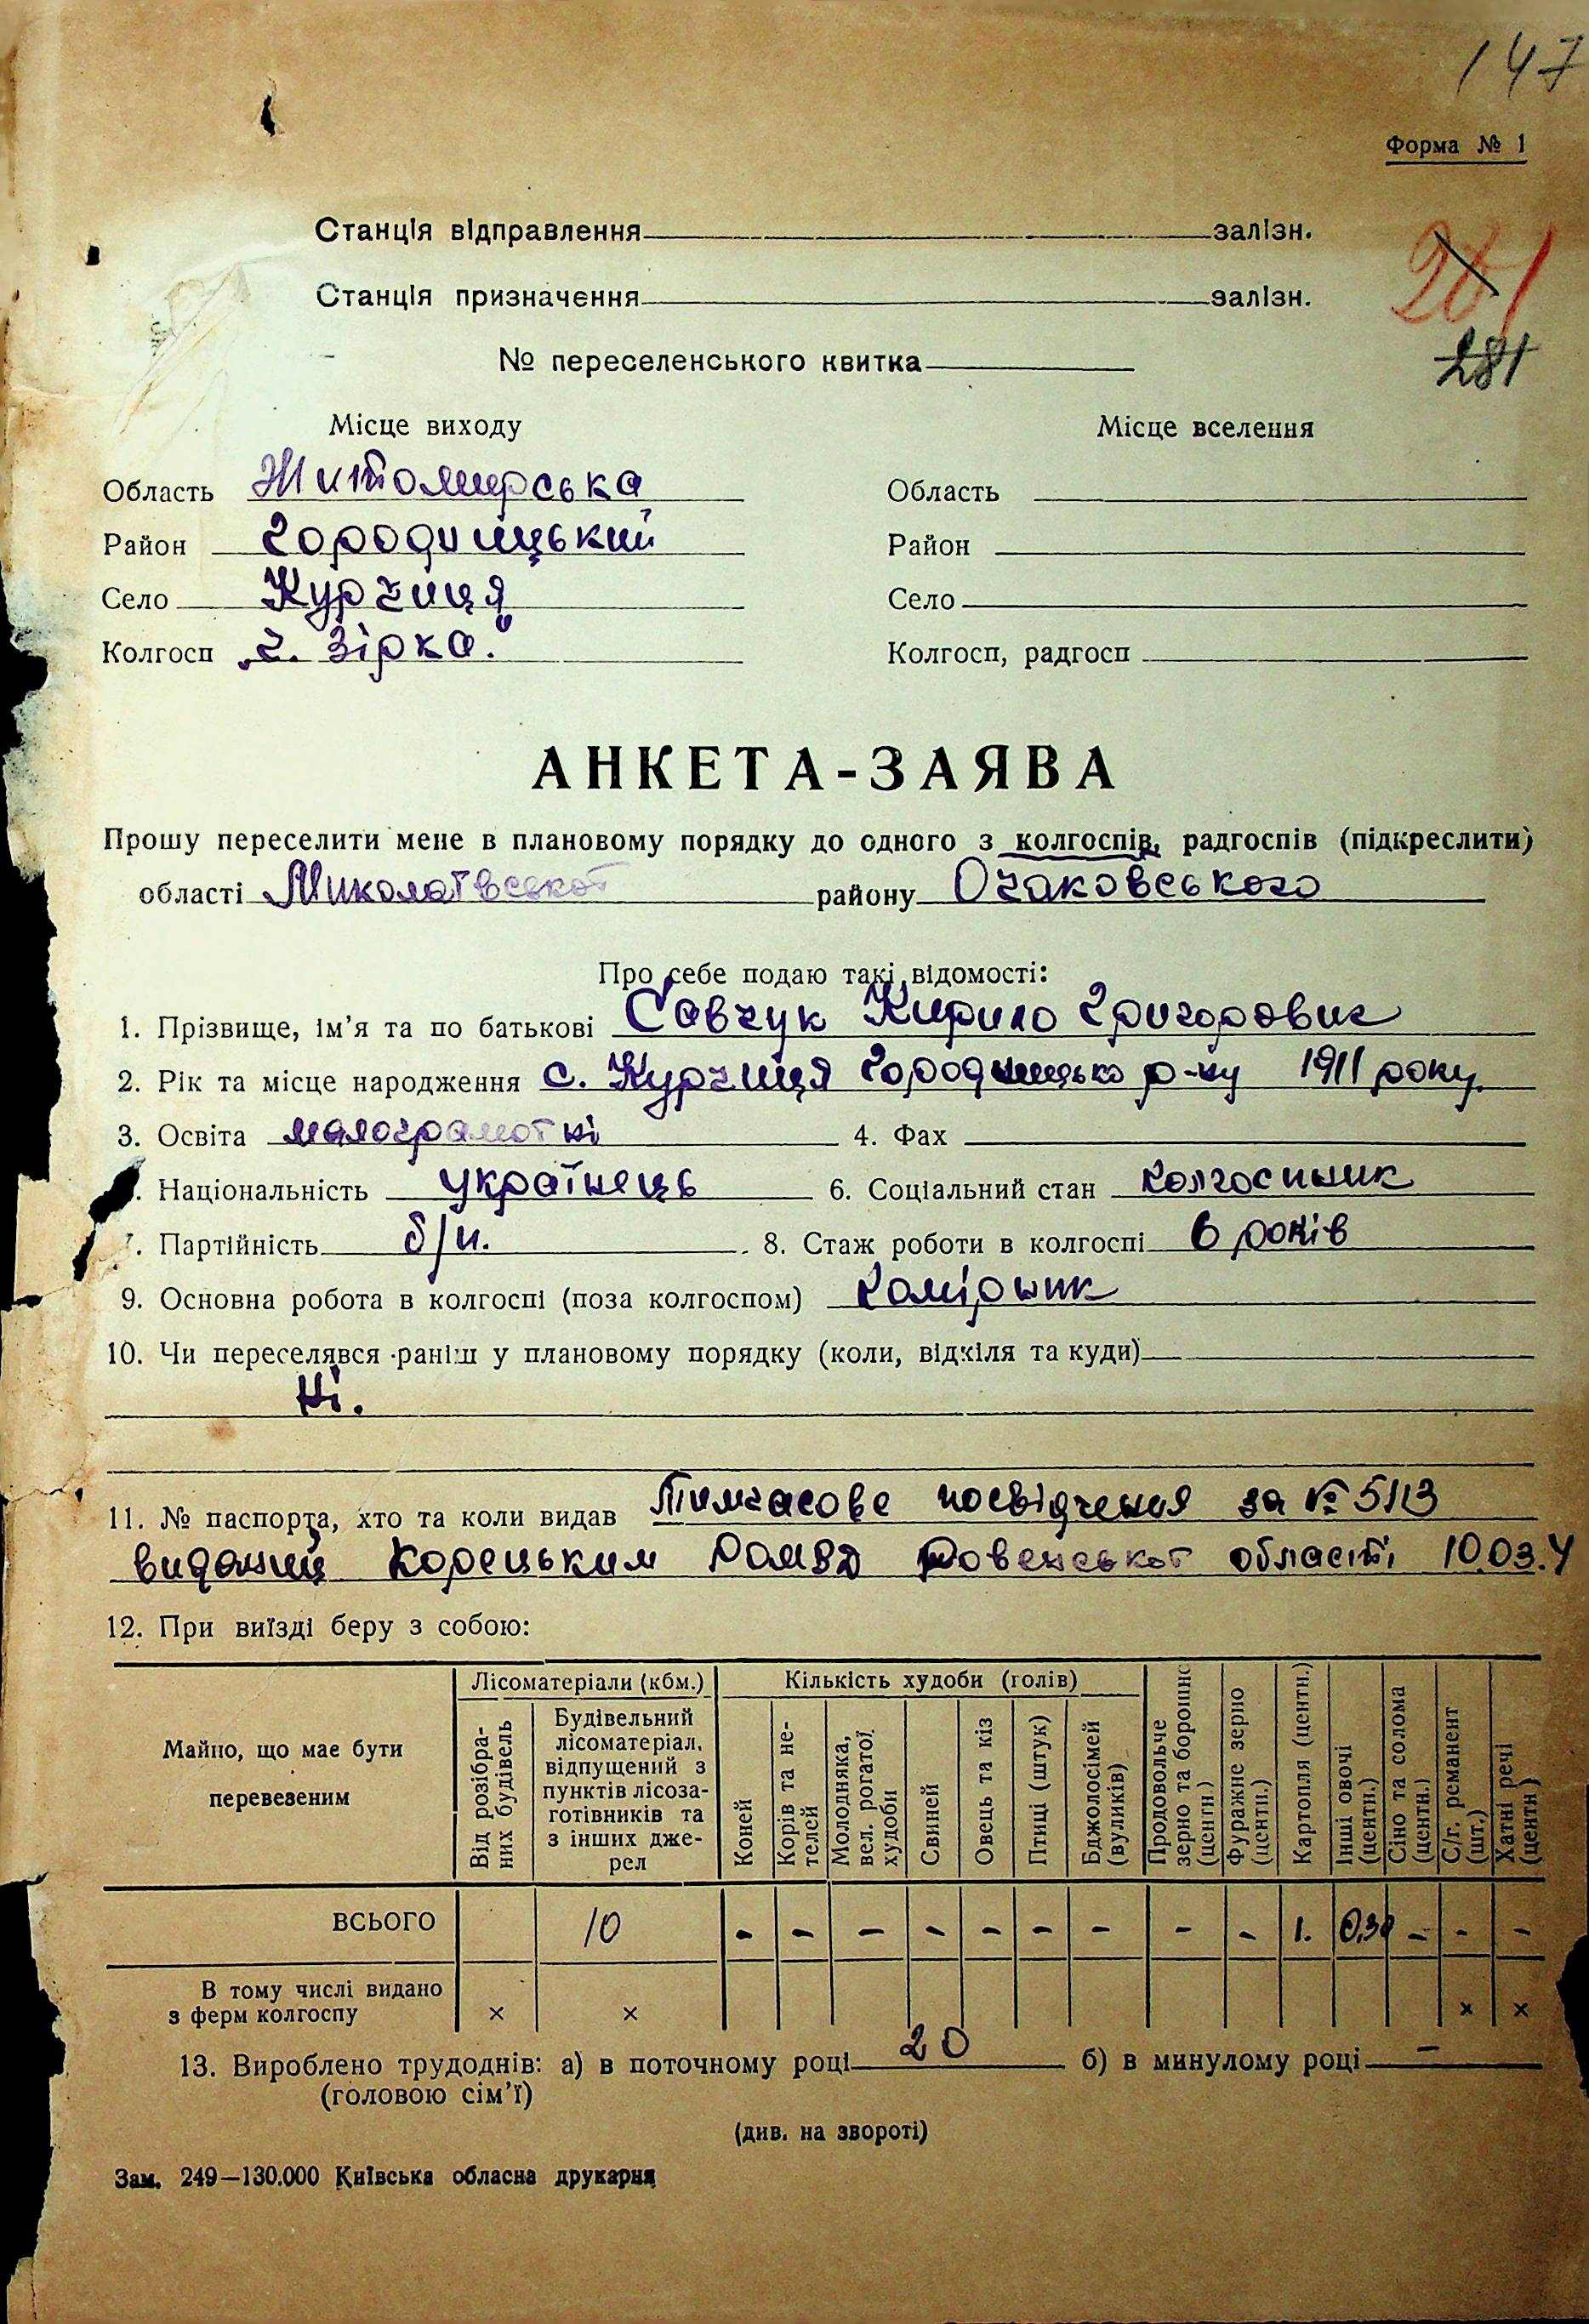 147
Форма № 1
Станція відправлення залізн.
Станція призначення залізн.
281
№ переселенського квитка
Місце виходу Місце вселення
Область Житомирська Область
Район Городницький Район
Село Курчиця Село
Колгосп „Ч. Зірка." Колгосп, радгосп
АНКЕТА-ЗАЯВА
Прошу переселити мене в плановому порядку до одного з колгоспів, радгоспів (підкреслити)
області Миколаївської району Очаковського
Про себе подаю такі відомості:
1. Прізвище, ім'я та по батькові Савчук Кирило Григорович
2. Рік та місце народження с. Курчиця Городницько р-ну 1911 року.
3. Освіта малограмотні 4. Фах
. Національність українець 6. Соціальний стан колгоспник
7. Партійність б/п. 8. Стаж роботи в колгоспі 6 років
9. Основна робота в колгоспі (поза колгоспом) комірник
10. Чи переселявся раніш у плановому порядку (коли, відкіля та куди)
Ні.
11. № паспорта, хто та коли видав Тимчасове посвідчення за № 5113
виданий Корецьким РОМВД Ровенської області 10.03.4
12. При виїзді беру з собою:
Майно, що має бути перевезеним
Лісоматеріали (кбм.)
Кількість худоби (голів)
Від розібраних будівель
Будівельний лісоматеріал, відпущений з пунктів лісозаготівників та з інших джерел
Коней
Корів та нетелей
Молодняка, вел. рогатої худоби
Свиней
Овець та кіз
Птиці (штук)
Бджолосімей (вуликів)
Продовольче зерно та борошно (центн.)
Фуражне зерно (центн.)
Картопля (центн.)
Інші овочі (центн.)
Сіно та солома (центн.)
С/г. реманент (шт.)
Хатні речі (центн)
ВСЬОГО 10 - - - - - - - - - 1. 0,30 - - -
В тому числі видано з ферм колгоспу × × × ×
13. Вироблено трудоднів: а) в поточному році 20 б) в минулому році —
(головою сім'ї)
(див. на звороті)
Зам. 249—130.000 Київська обласна друкарня